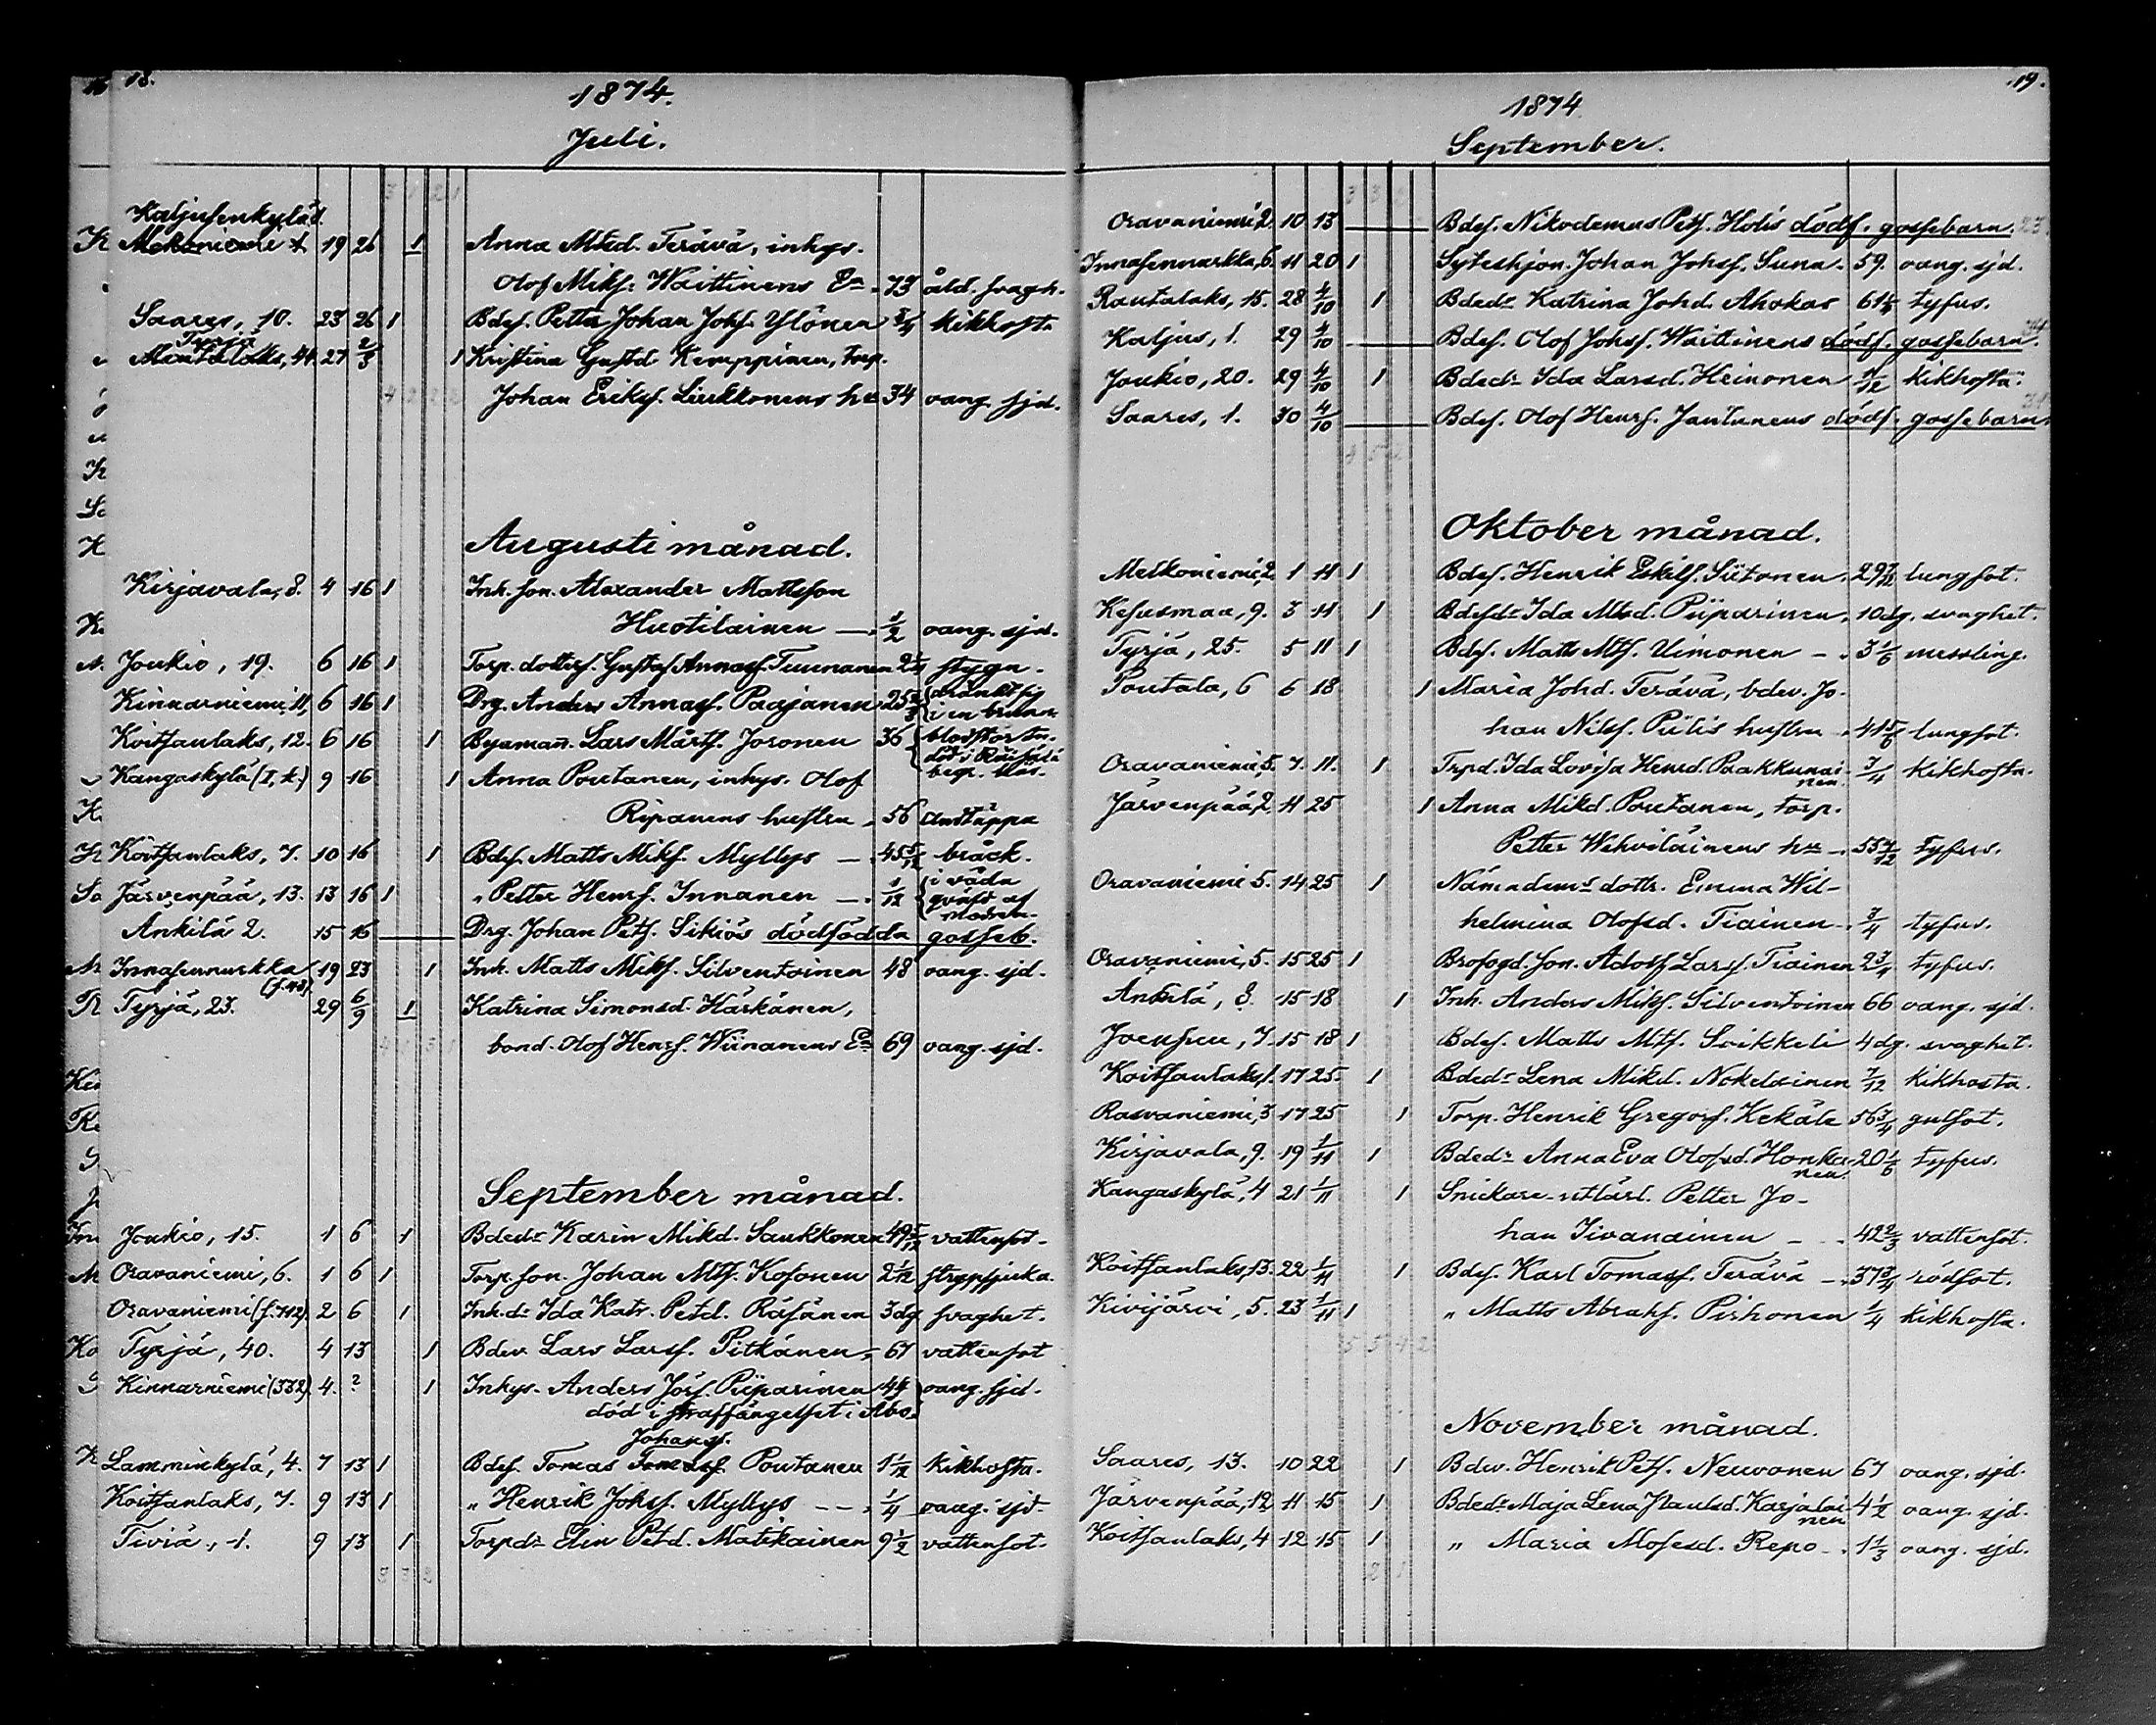 18.
1874.
Juli.
Kaljusenkylä 8.
19 26 1 Anna Mtsd. Terävä, inhys.
Olof Miks. Waittinens Ea 73 åld. svagh.
Saares, 10. 23 26 1 Bdes. Petter Johan Johs. Ylönen 3/4 kikhosta
Tyrjä
27 2/3 1 Kristina Gustd. Kemppinen, torp.
Johan Eriks. Liukkonens hu 34 oang. sjd.
Augusti månad.
Kirjavala, 8. 4 16 1 Inh. son. Alexander Mattsson
Huotilainen — 1/2 oang. sjd.
Joukio, 19. 6 16 1 Torp. dotters. Gustaf Annas. Tuunanen stygn.
Kinnarniemi, 11, 6 16 1 Drg. Anders Annas. Paajanen dränkt sig
i en brunn.
Koitsanlaks, 12. 6 16 1 Byaman. Lars Mårts. Joronen 36 blodstörtn.
död i Räisälä
begr. där.
Kangaskylä (I, k.) 9 16 1 Anna Poutanen, inhys. Olof
Ripanens hustru 56 andtäppa
Koitsanlaks, 7. 10 16 1 Bdes. Matts Miks. Myllys — 45 5/12 bråck.
Järvenpää, 13. 13 16 1 „ Petter Henrs. Innanen — 1/12 i våda
qväfd af
modren.
Ankila 2. 15 16 — Drg. Johan Pets. Sikiös dödfödda gosseb.
Innasennurkka 19 23 1 Inh. Matts Miks. Silventoinen 48 oang. sjd.
Tyrjä, 23. 29 6/9 1 Katrina Simonsd. Härkänen,
bond. Olof Henrs. Wiinanens Ea 69 oang. sjd.
September månad.
Joukio, 15. 1 6 1 Bdedr Karin Mikd. Saukkonen 49 5/12 vattensot.
Oravaniemi, 6. 1 6 1 Torp. son. Johan Mts. Kosonen 2 1/12 strypsjuka.
Oravaniemi (s. 712). 2 6 1 Inh. dr Ida Katr. Petd. Räsänen 3 dg. svaghet.
Tyrjä, 40. 4 13 1 Bdev. Lars Larss. Pitkänen 67 vattensot
Kinnarniemi (332) 4. ? 1 Inhys. Anders Jörs. Piiparinen 44 oang. sjd.
död i straffängelset i Åbo.
Johans.
Lamminkylä, 4. 7 13 1 Bdes. Tomas Tomass. Poutanen 1 1/12 kikhosta.
Koitsanlaks, 7. 9 13 1 „ Henrik Johs. Myllys — 1/4 oang. sjd.
Tiviä, 1. 9 13 1 Torpdr Elin Petd. Matikainen 9 1/2 vattensot.
19.
1874
September.
Oravaniemi, 2. 10 13 — Bdes. Nikodemus Pets. dödf. gossebarn. 23.
Innasennurkka, 6. 11 20 1 Syteshjon. Johan Johss. Suna. 59. oang. sjd.
Rautalaks, 15. 28 4/10 1 Bdedr Katrina Johd. Ahokas tyfus.
Kaljus, 1. 29 4/10 — Bdes. Olof Johss. Waittinens dödf. gossebarn.
Joukio, 20. 29 4/10 1 Bdedr Ida Larsd. Heinonen 11/12 kikhosta.
Saares, 1. 30 4/10 — Bdes. Olof Henrs. Jantunens dödf. gossebarn.
Oktober månad.
Melkoniemi, 2. 1 11 1 Bdes. Henrik Eskils. Siitonen. lungsot.
Kesusmaa, 9. 3 11 1 Bdesdr Ida Mtsd. Piiparinen. 10 dg. svaghet.
Tyrjä, 25. 5 11 1 Bdes. Matts Mts. Uimonen — 3 1/6 messling.
Poutala, 6 6 18 1 Maria Johd. Terävä, bdev. Jo-
han Nilss. Piilis hustru 41 5/6 lungsot.
Oravaniemi, 5. 7. 11. 1 Trpd. Ida Lovisa Henrd. Paakkunai-
nen. 3/4 kikhosta.
Järvenpää, 2. 11 25 1 Anna Mikd. Poutanen, torp.
Petter Wehviläinens hu — 55 7/12 tyfus.
Oravaniemi 5. 14 25 1 Nämndems dottr. Emma Wil-
helmina Olofsd. Tiainen — 3/4 tyfus.
Oravaniemi, 5. 15 25 1 Brofogd. son. Adolf Larss. Tiainen 2 3/4 tyfus.
Ankila, 8. 15 18 1 Inh. Anders Miks. Silventoinen 66 oang. sjd.
Joensuu, 7. 15 18 1 Bdes. Matts Mts. Soikkeli 4 dg. svaghet.
Koitsanlaks, 1. 17 25. 1 Bdedr Lena Mikd. Nokelainen 7/12 kikhosta.
Rasvaniemi, 3 17 25 1 Torp. Henrik Gregors. Kekäle 56 3/4 gulsot.
Kirjavala, 9. 19 1/11 1 Bdedr Anna Eva Olofsd. Honka-
nen. 20 1/6 tyfus.
Kangaskylä, 4 21 1/11 1 Snickare-utlärl. Petter Jo-
han Iivanainen — 42 2/3 vattensot.
Koitsanlaks, 13. 22 1/11 1 Bdes. Karl Tomass. Terävä — 37 3/4 rödsot.
Kivijärvi, 5. 23 1/11 1 „ Matts Abrahs. Pirhonen 1/4 kikhosta.
November månad.
Saares, 13. 10 22 1 Bdev. Henrik Pets. Neuvonen 67 oang. sjd.
Järvenpää, 12 11 15 1 Bdedr Maja Lena Paulsd. Karjalai-
nen 4 1/2 oang. sjd.
Koitsanlaks, 4 12 15 1 „ Maria Mosesd. Repo — 1 1/3 oang. sjd.